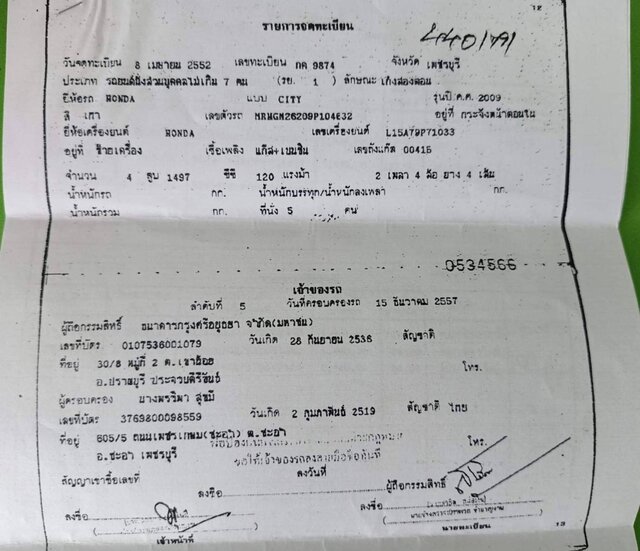 12
รายการจดทะเบียน
4401791
วันจดทะเบียน 8 เมษายน 2552 เลขทะเบียน กค 9874 จังหวัด เพชรบุรี
ประเภท รถยนต์นั่งส่วนบุคคลไม่เกิน 7 คน (รย. 1) ลักษณะ เก๋งสองตอน
ยี่ห้อรถ HONDA แบบ CITY รุ่นปี ค.ศ. 2009
สี เทา เลขตัวรถ MRHGM26209P104632 อยู่ที่ กระจังหน้าตอนใน
ยี่ห้อเครื่องยนต์ HONDA เลขเครื่องยนต์ L15A79P71033
อยู่ที่ ซ้ายเครื่อง เชื้อเพลิง แก๊ส+เบนซิน เลขถังแก๊ส 00415
จำนวน 4 สูบ 1497 ซีซี 120 แรงม้า 2 เพลา 4 ล้อ ยาง 4 เส้น
น้ำหนักรถ กก. น้ำหนักบรรทุก/น้ำหนักลงเพลา กก.
น้ำหนักรวม กก. ที่นั่ง 5 คน
0534566
เจ้าของรถ
ลำดับที่ 5 วันที่ครอบครองรถ 15 ธันวาคม 2557
ผู้ถือกรรมสิทธิ์ ธนาคารกรุงศรีอยุธยา จำกัด(มหาชน)
เลขที่บัตร 0107536001079 วันเกิด 28 กันยายน 2536 สัญชาติ
ที่อยู่ 30/8 หมู่ที่ 2 ต.เขาน้อย โทร.
อ.ปราณบุรี ประจวบคีรีขันธ์
ผู้ครอบครอง นางพรวิมา สุขมี
เลขที่บัตร 3769800098559 วันเกิด 2 กุมภาพันธ์ 2519 สัญชาติ ไทย
ที่อยู่ 605/5 ถนนเพชรเกษม(ชะอำ) ต.ชะอำ โทร.
อ.ชะอำ เพชรบุรี
ขอให้เจ้าของรถลงลายมือชื่อทันที
สัญญาเช่าซื้อเลขที่ ลงวันที่
ลงชื่อ ผู้ถือกรรมสิทธิ์
ลงชื่อ
เจ้าหน้าที่ นายทะเบียน 13